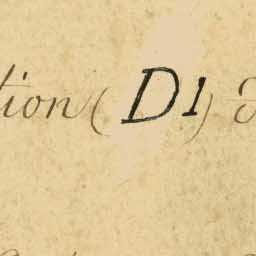 tion (D1)